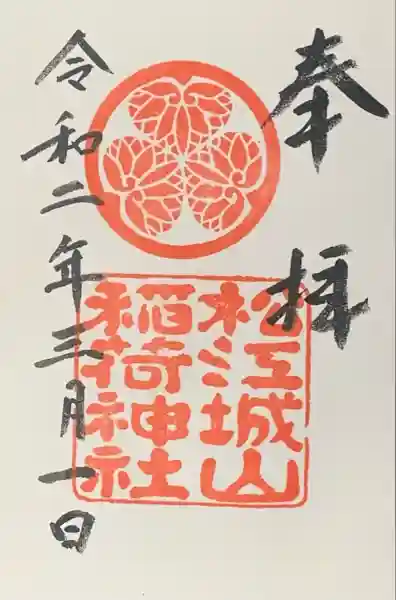 奉拝
松江城山
稲荷神社
令和二年三月一日